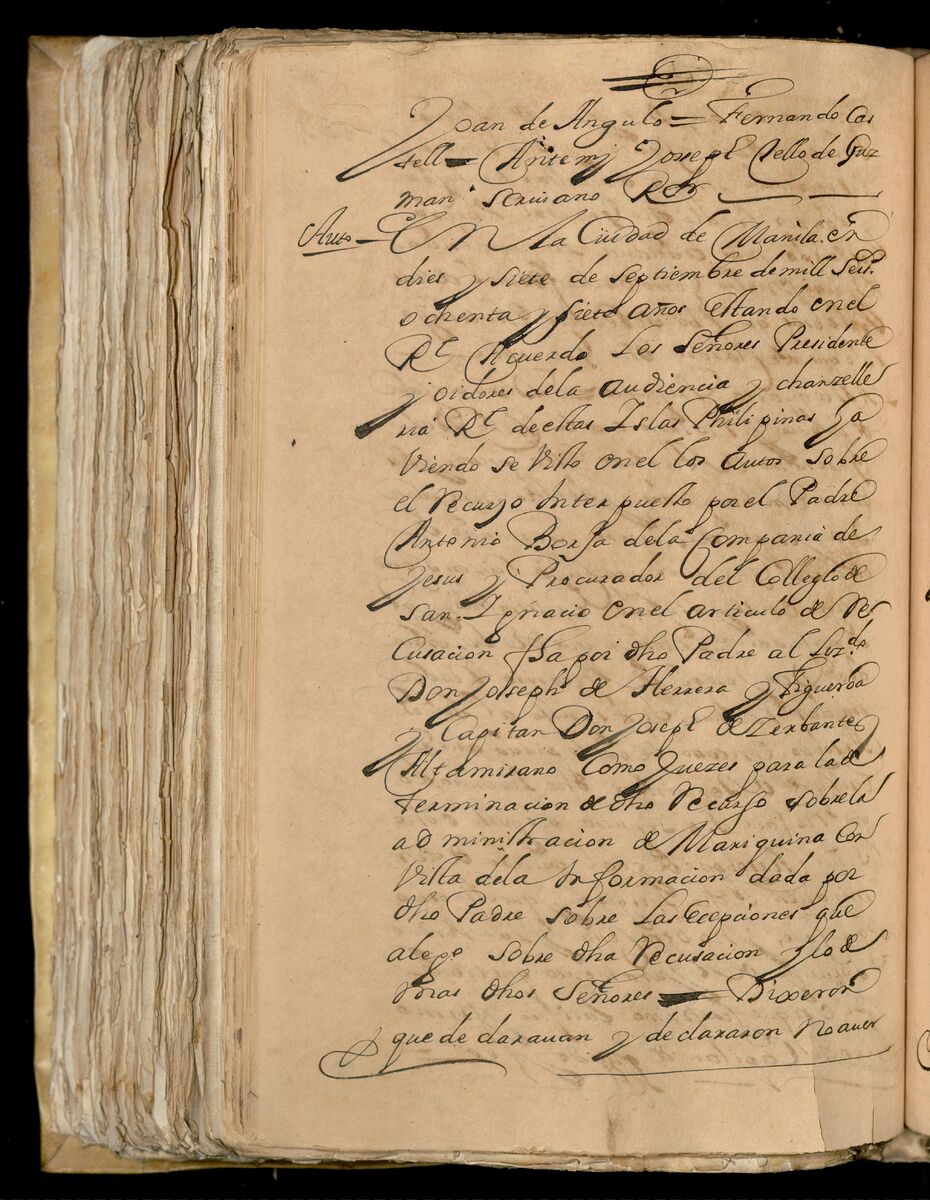 Joan de Angulo = Fernando Cas
tell = Antemj Joseph Tello de Guz
man scriuano Rr
Auto = En la Ciudad de Manila en
dies y siete de septiembre de mill seisº
ochenta y siete años estando en el
Rl Acuerdo Los Señores Presidente
y oidores dela Audiencia y chanzelle
ria Rl de estas Islas Philipinas ha
viendo se visto en el los autos sobre
el recurso Interpuesto por el Padre
Antonio Borja dela Compania de
Jesus y Procurador del Collegio de
San Ignacio en el articulo de re
cusacion fha por dho Padre al Lizdo
Don Joseph de Herrera y Figueroa
y Capitan Don Joseph de Zerbantes
Altamirano Como Juezes para la de
terminacion de dho recurso sobre la
administracion de Mariquina con
vista dela Informacion dada por
dho Padre sobre Las ecepciones que
alego sobre dha recusacion y lo de
mas dhos Señores = Dixeron
que declarauan y declararon hauer